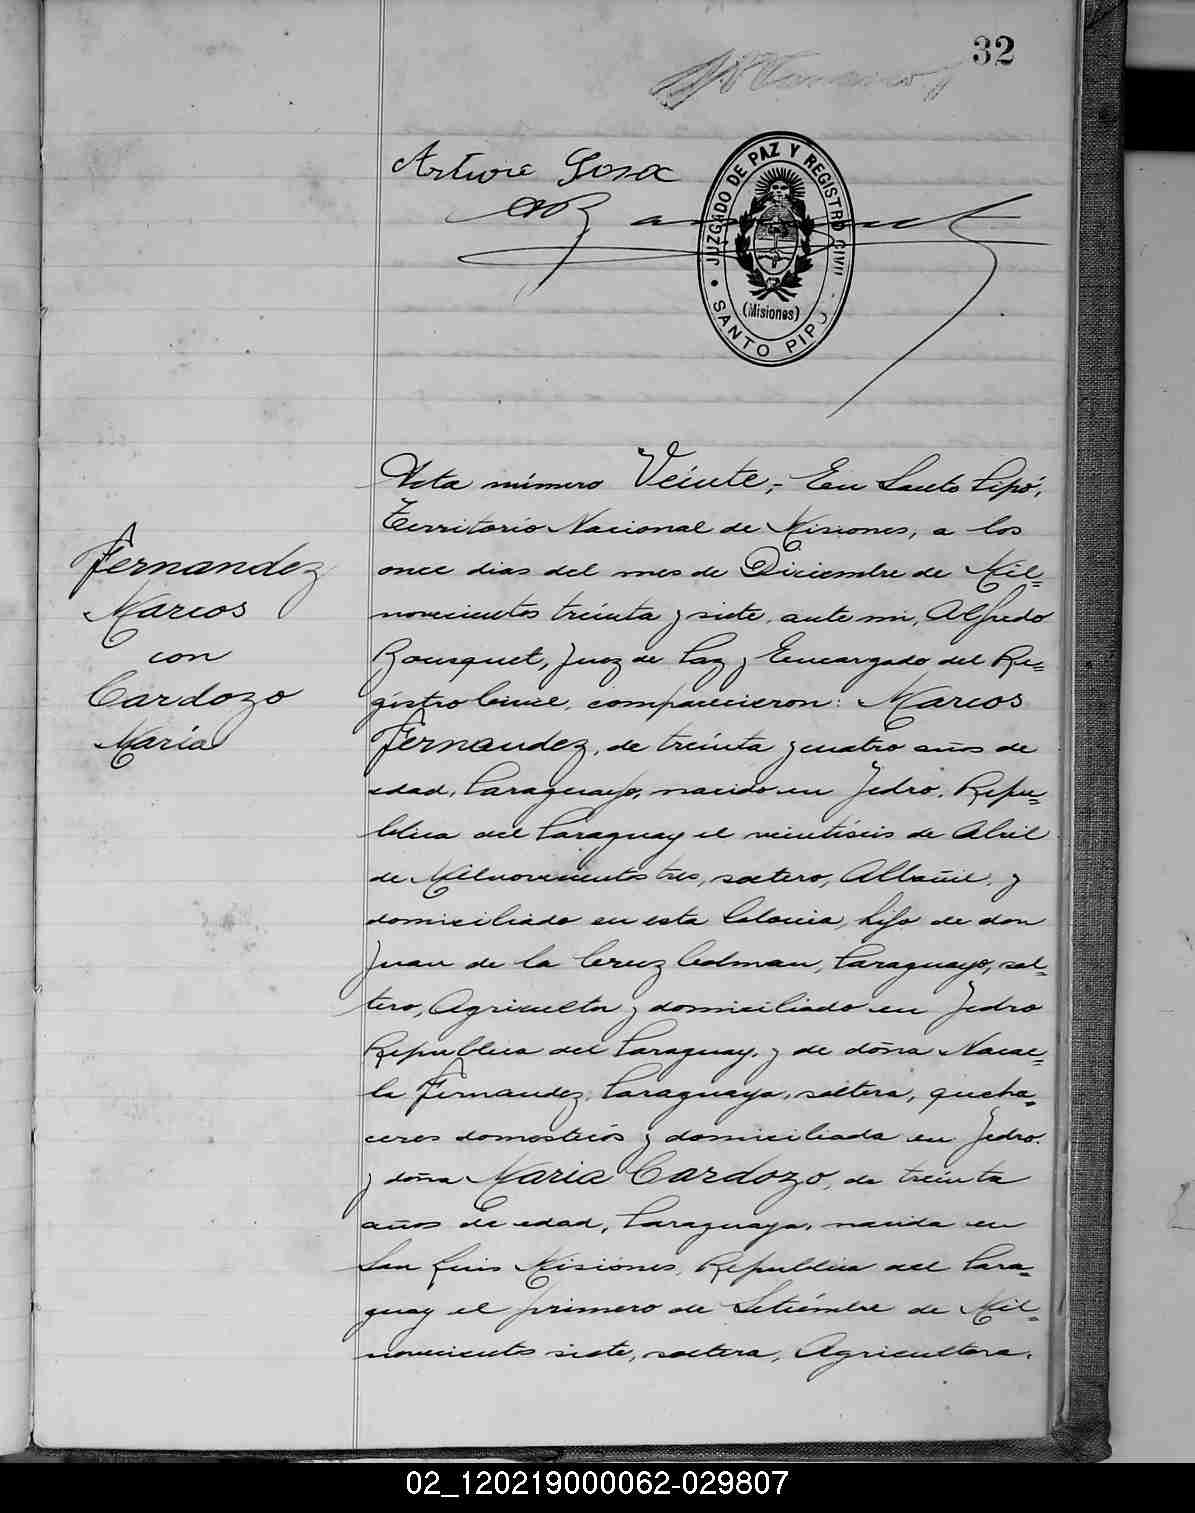 32
Arturo Sosa
JUZGADO DE PAZ Y REGISTRO CIVIL
(Misiones)
SANTO PIPÓ
Acta número Veinte,- En Santo Pipó,
Territorio Nacional de Misiones, a los
once dias del mes de Diciembre de Mil=
novecientos treinta y siete, ante mi, Alfredo
Bousquet, Juez de Paz y Encargado del Re=
gistro Civil, comparecieron: Marcos
Fernandez, de treinta y cuatro años de
edad, Paraguayo, nacido en Jedro, Repu=
blica del Paraguay el veintiseis de Abril
de Milnovecientos tres, soltero, Albañil, y
domiciliado en esta Colonia, hijo de don
Juan de la Cruz Cedman, Paraguayo, sol=
tero, Agricultor y domiciliado en Jedro
Republica del Paraguay, y de doña
la Fernandez, Paraguaya, soltera, queha=
ceres domesticos y domiciliada en Jedro.
y doña Maria Cardozo, de treinta
años de edad, Paraguaya, nacida en
San Luis Misiones, Republica del Para=
guay el primero de Setiémbre de Mil=
novecientos siete, soltera, Agricultora.
Fernandez
Marcos
con
Cardozo
María
02_120219000062-029807